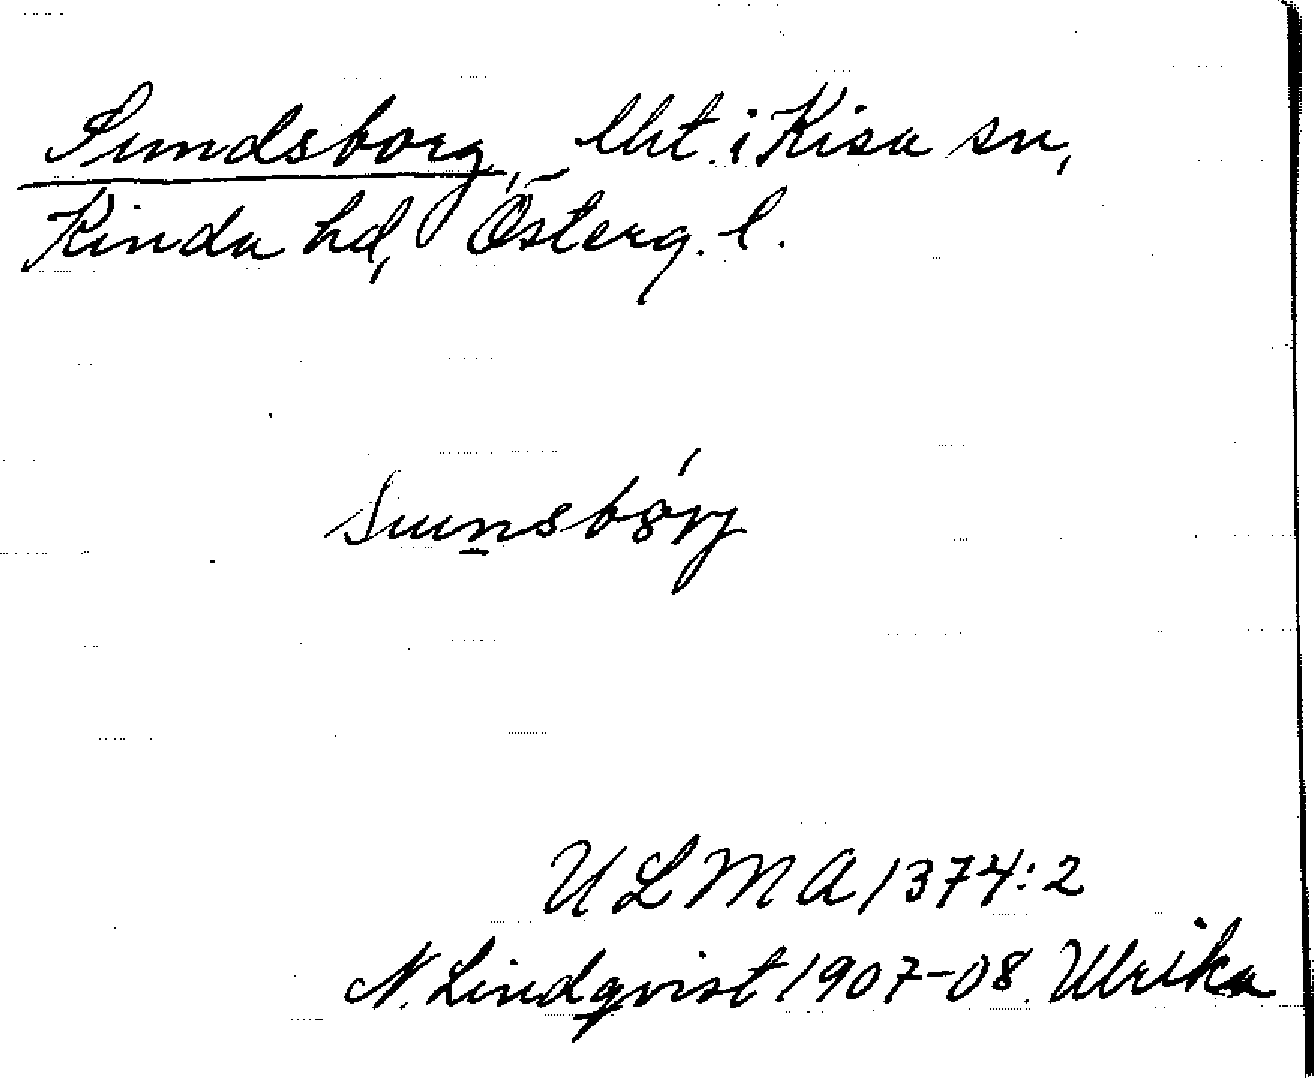 Sundsborg, lht. i Kisa sn,
Kinda hd, Österg. l.
Sunsbórj
ULMA 1374:2
N. Lindqvist 1907-08. Ulrika